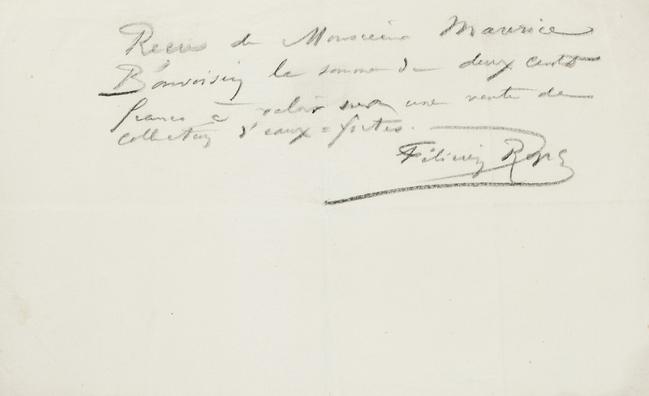 Recu de Monsieur Maurice
Bonvoisin la somme de deux cents
francs à valoir sur une vente de
collection d'eaux=fortes.
Félicien Rops